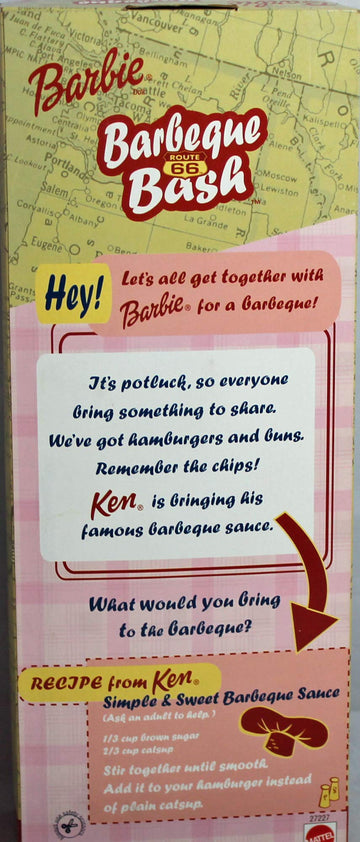 Vancouver
Juan de Fuca Victoria
C. Flattery
Bellingham
Nelson
Pend
Oreille
Barbie®
Tacoma
Kalispell
Barbeque
ROUTE
66
Bash™
Astoria
Portland
Moscow
Lewiston
Salem
Corvallis
Albany
La Grande
Eugene
Bend
Baker
Grants
Pass
Hey!
Let's all get together with
Barbie® for a barbeque!
It's potluck, so everyone
bring something to share.
We've got hamburgers and buns.
Remember the chips!
Ken® is bringing his
famous barbeque sauce.
What would you bring
to the barbeque?
RECIPE from Ken®
Simple & Sweet Barbeque Sauce
(Ask an adult to help.)
1/3 cup brown sugar
2/3 cup catsup
Stir together until smooth.
Add it to your hamburger instead
of plain catsup.
27227
MATTEL